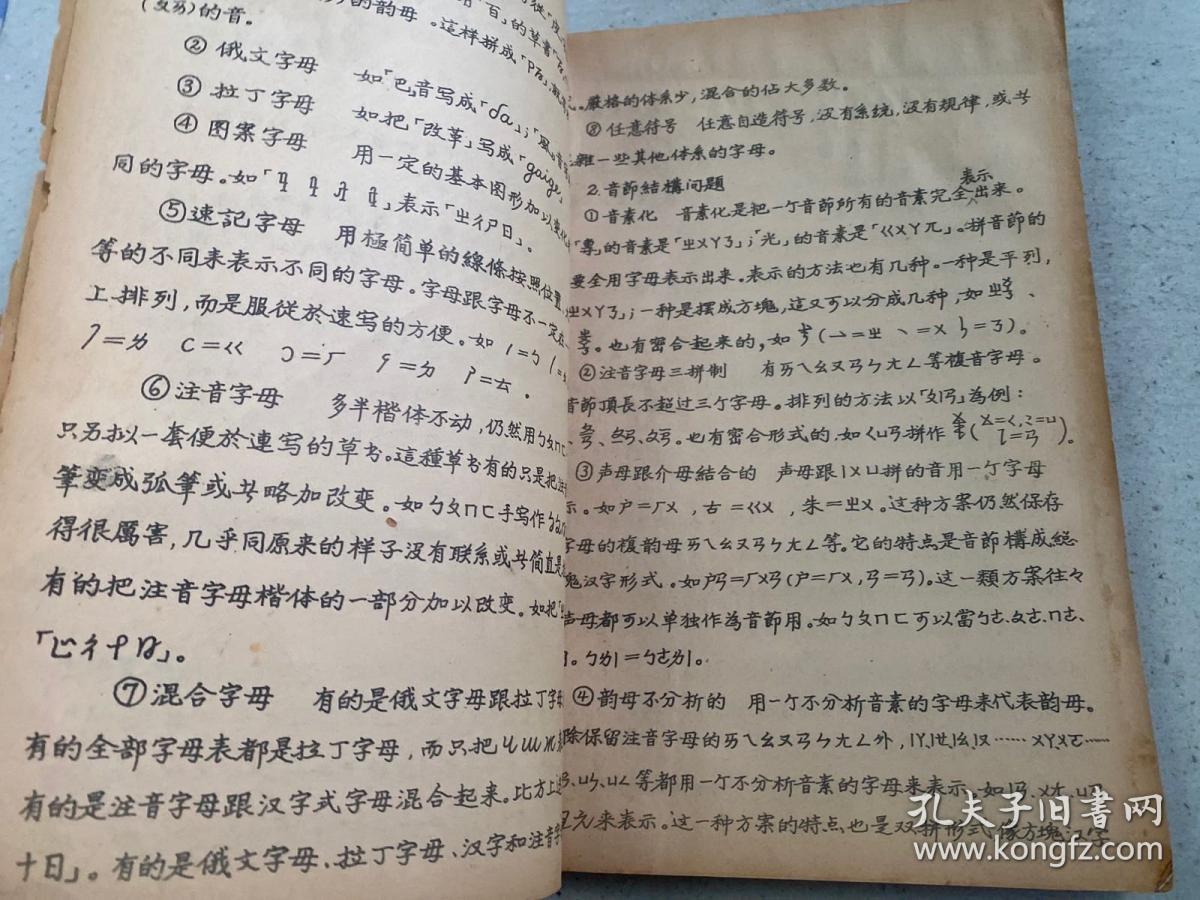 (ㄆㄞ)的音。
② 俄文字母 如「巴」音写成「ба」;「
③ 拉丁字母 如把「改革」写成「gaige」
④ 图案字母 用一定的基本图形加以变化
同的字母。如「 」表示「ㄓㄔㄕㄖ」。
⑤ 速記字母 用極简单的線條按照位置
等的不同来表示不同的字母。字母跟字母不一定
上排列,而是服從於速写的方便。如
=ㄌ c=ㄍ ɔ=ㄏ =ㄉ =ㄊ。
⑥ 注音字母 多半楷体不动,仍然用ㄅㄆㄇㄈ
只另拟一套便於連写的草书。這種草书有的只是把
筆变成弧筆或𠀤略加改变。如ㄅㄆㄇㄈ手写作
得很厲害,几乎同原来的样子没有联系或𠀤简直是
有的把注音字母楷体的一部分加以改变。如把「
⑦ 混合字母 有的是俄文字母跟拉丁字母
有的全部字母表都是拉丁字母,而只把ч ш ж
有的是注音字母跟汉字式字母混合起来。比方上
十日」。有的是俄文字母、拉丁字母、汉字和注音字
。嚴格的体系少,混合的佔大多数。
⑧ 任意符号 任意自造符号,没有系统,没有規律,或𠀤
雜一些其他体系的字母。
2. 音節結構问题
① 音素化 音素化是把一个音節所有的音素完全表示出来。
「專」的音素是「ㄓㄨㄚㄋ」;「光」的音素是「ㄍㄨㄚㄫ」。拼音節的
要全用字母表示出来。表示的方法也有几种。一种是平列,
ㄓㄨㄚㄋ」;一种是摆成方塊,這又可以分成几种,如
。也有密合起来的,如 ( =ㄓ 丶=ㄨ =ㄋ)。
② 注音字母三拼制 有ㄞㄟㄠㄡㄢㄣㄤㄥ等複音字母。
音節頂長不超过三个字母。排列的方法以「ㄆㄧㄢ」為例:
。也有密合形式的,如ㄑㄩㄢ拼作
③ 声母跟介母結合的 声母跟ㄧㄨㄩ拼的音用一个字母
示。如户=ㄏㄨ,古=ㄍㄨ,朱=ㄓㄨ。这种方案仍然保存
字母的複韵母ㄞㄟㄠㄡㄢㄣㄤㄥ等。它的特点是音節構成總
塊汉字形式。如户ㄢ=ㄏㄨㄢ(户=ㄏㄨ,ㄢ=ㄢ)。这一類方案往々
声母都可以单独作為音節用。如ㄅㄆㄇㄈ可以當ㄅㄜ.ㄆㄜ.ㄇㄜ、
。ㄅㄌㄧ=ㄅㄜㄌㄧ。
④ 韵母不分析的 用一个不分析音素的字母来代表韵母。
除保留注音字母的ㄞㄟㄠㄡㄢㄣㄤㄥ外,ㄧㄚ.ㄧㄝ.ㄧㄠ.ㄧㄡ……ㄨㄚ.ㄨㄛ……
ㄩㄣ.ㄩㄥ等都用一个不分析音素的字母来表示。如ㄧㄢ.ㄨㄤ.ㄩㄢ
元来表示。这一种方案的特点也是双拼形式像方塊汉字
孔夫子旧書网
www.kongfz.com